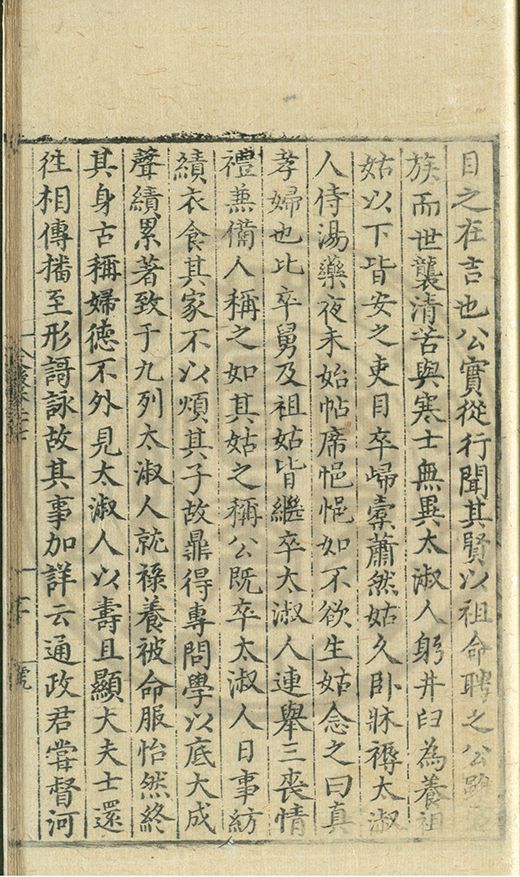 目之在吉也公實從行聞其賢以祖命聘之公
族而世襲清苦與寒士無異太淑人躬井臼為養祖
姑以下皆安之吏目卒歸橐蕭然姑久卧牀褥太淑
人侍湯藥夜未始帖席悒悒如不欲生姑念之曰真
孝婦也比卒舅及祖姑皆繼卒太淑人連舉三喪情
禮兼備人稱之如其姑之稱公既卒太淑人日事紡
績衣食其家不以煩其子故鼎得專問學以底大成
聲績累著致于九列太淑人就祿養被命服怡然終
其身古稱婦德不外見太淑人以壽且顯大夫士還
徃相傳播至形謌詠故其事加詳云通政君嘗督河